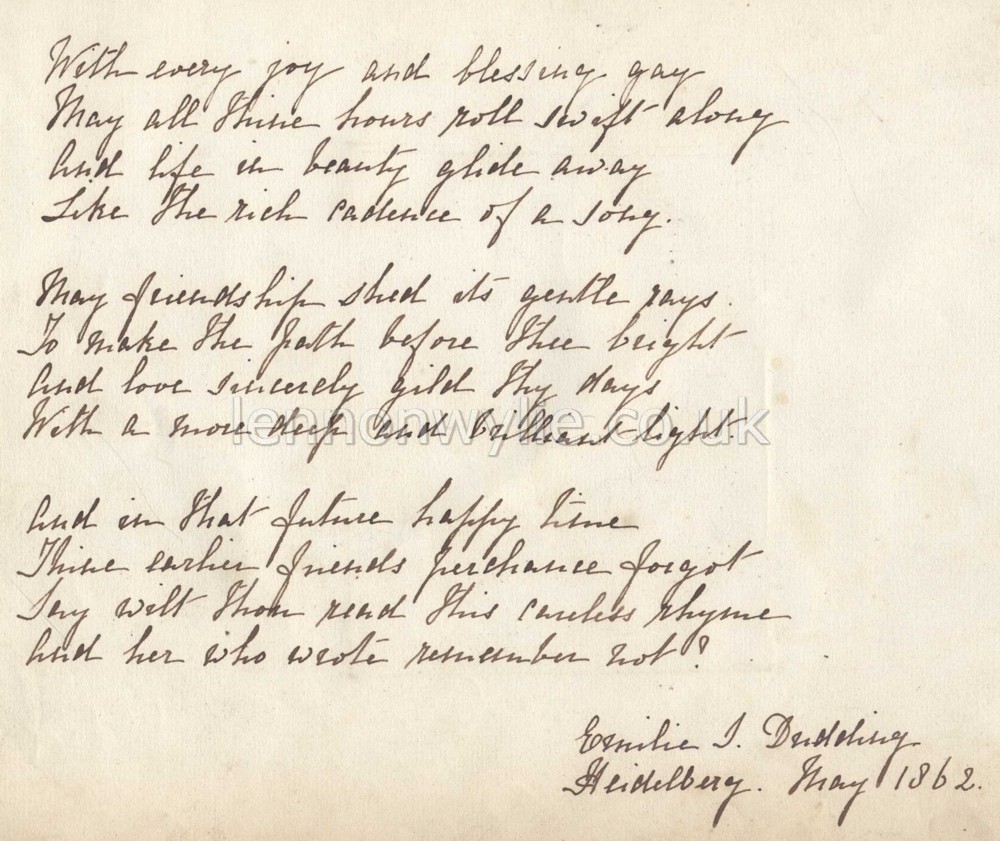 With every joy and blessing gay
May all thine hours roll swift along
And life in beauty glide away
Like the rich cadence of a song.
May friendship shed its gentle rays.
To make the path before thee bright
And love sincerely gild thy days
With a more deep and brilliant light
lennonwylie.co.uk
And in that future happy time
Thine earlier friends perchance forgot
Say wilt thou read this careless rhyme
And her who wrote remember not?
Emilie I. Dudding
Heidelberg. May 1862.